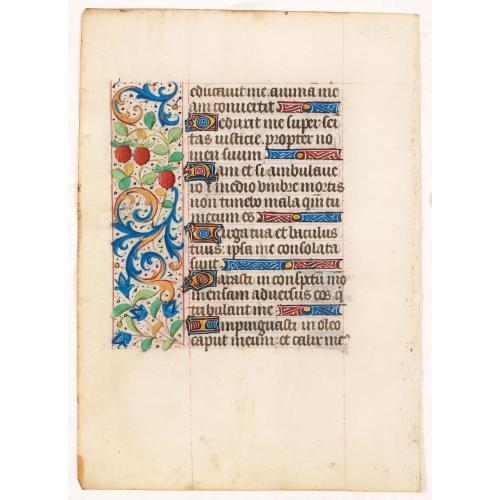 educavit me. animā me
am convertit
Deduxit me super sei
tas iusticie. propter no
men suum
Nam et si ambulave
ro ī medio umbre mortis
non timebo mala qm̄ tu
mecum es
Virga tua et baculus
tuus: ipsa me consolata
sunt
Parasti in conspectu mō
mensam adversus eos q̄
tribulant me
Impinguasti in oleo
caput meum: et calix me